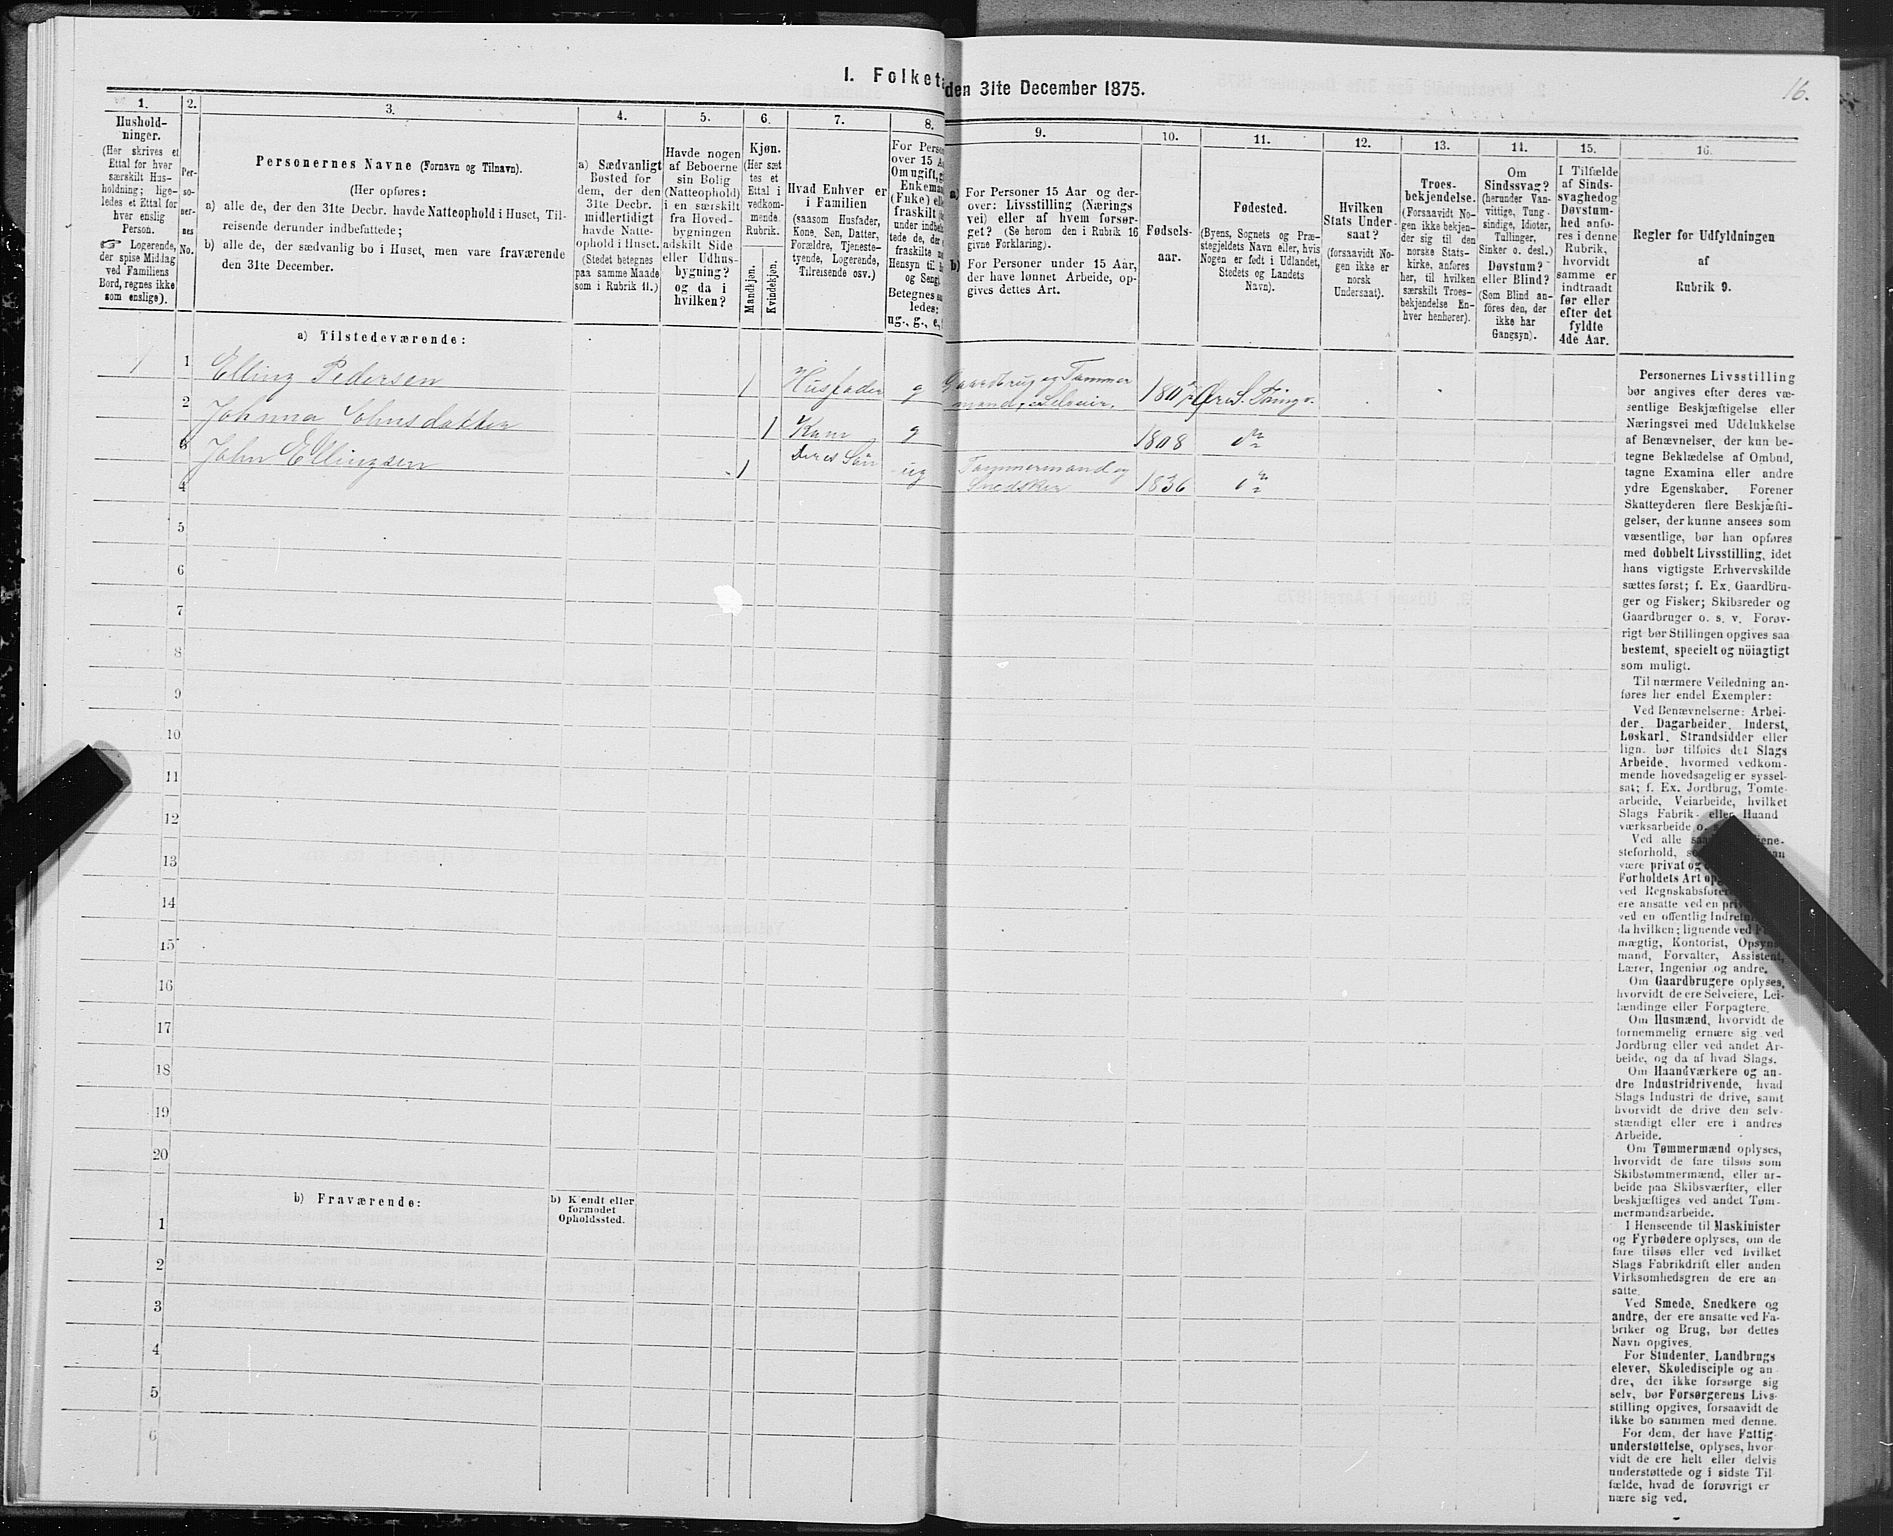 16.
I. Folket
den 31te December 1875.
1.
Hushold-
ninger.
(Her skrives et
Ettal for hver
særskilt Hus-
holdning; lige-
ledes et Ettal for
hver enslig
Person.
☞ Logerende,
der spise Middag
ved Familiens
Bord, regnes ikke
som enslige).
2.
Per-
so-
ner-
nes
No.
3.
Personernes Navne (Fornavn og Tilnavn).
(Her opføres:
a) alle de, der den 31te Decbr. havde Natteophold i Huset, Til-
reisende derunder indbefattede;
b) alle de, der sædvanlig bo i Huset, men vare fraværende
den 31te December.
4.
a) Sædvanligt
Bosted for
dem, der den
31te Decbr.
midlertidigt
havde Natte-
ophold i Huset.
(Stedet betegnes
paa samme Maade
som i Rubrik 11.)
5.
Havde nogen
af Beboerne
sin Bolig
(Natteophold)
i en særskilt
fra Hoved-
bygningen
adskilt Side
eller Udhus-
bygning?
og da i
hvilken?
6.
Kjøn.
(Her sæt
tes et
Ettal i
vedkom-
mende
Rubrik.
Mandkjøn.
Kvindekjøn.
7.
Hvad Enhver er
i Familien
(saasom Husfader,
Kone, Søn, Datter,
Forældre, Tjeneste-
tyende, Logerende,
Tilreisende osv.)
8.
For Perso
over 15 A
Om ugift, g
Enkeman
(Enke) ell
fraskilt
under indbe
tede de, der
fraskilte
Hensyn til
og Seng
Betegnes
ledes:
ug., g., e.,
9.
a) For Personer 15 Aar og der-
over: Livsstilling (Nærings
vei) eller af hvem forsør-
get? (Se herom den i Rubrik 16
givne Forklaring).
b) For Personer under 15 Aar,
der have lønnet Arbeide, op-
gives dettes Art.
10.
Fødsels-
aar.
11.
Fødested.
(Byens, Sognets og Præ-
stegjeldets Navn eller, hvis
Nogen er født i Udlandet,
Stedets og Landets
Navn).
12.
Hvilken
Stats Under-
saat?
(forsaavidt No-
gen ikke er
norsk
Undersaat).
13.
Troes-
bekjendelse.
(Forsaavidt No-
gen ikke bekjen-
der sig til den
norske Stats-
kirke, anføres
her, til hvilken
særskilt Troes-
bekjendelse En-
hver henhører).
14.
Om
Sindssvag?
(herunder Van-
vittige, Tung-
sindige, Idioter,
Tullinger,
Sinker o. desl.)
Døvstum?
eller Blind?
(Som Blind an-
føres den, der
ikke har
Gangsyn).
15.
I Tilfælde
af Sinds-
svaghedog
Døvstum-
hed anfø-
res i denne
Rubrik,
hvorvidt
samme er
indtraadt
før eller
efter det
fyldte
4de Aar.
16.
Regler for Udfyldningen
af
Rubrik 9.
a) Tilstedeværende:
1 1 Elling Pedersen 1 Husfader g Gaardbrug og Tømmer
mand, Selveier.
2 Johnna Johnsdatter 1 Kone g 1808 do
3 John Ellingsen 1 Deres Søn ug Tømmermand og
Snedsker 1836 do
4
5
6
7
8
9
10
11
12
13
14
15
16
17
18
19
20
b) Fraværende:
b) Kjendt eller
formodet
Opholdssted.
1
2
3
4
5
6
Personernes Livsstilling
bør angives efter deres væ-
sentlige Beskjæftigelse eller
Næringsvei med Udelukkelse
af Benævnelser, der kun be-
tegne Beklædelse af Ombud,
tagne Examina eller andre
ydre Egenskaber. Forener
Skatteyderen flere Beskjæfti-
gelser, der kunne ansees som
væsentlige, bør han opføres
med dobbelt Livsstilling, idet
hans vigtigste Erhvervskilde
sættes først; f. Ex. Gaardbru-
ger og Fisker; Skibsreder og
Gaardbruger o. s. v. Forøv-
rigt bør Stillingen opgives saa
bestemt, specielt og nöiagtigt
som muligt.
Til nærmere Veiledning an-
føres her endel Exempler:
Ved Benævnelserne: Arbei-
der, Dagarbeider, Inderst,
Løskarl, Strandsidder eller
lign. bør tilføies det Slags
Arbeide, hvormed vedkom-
mende hovedsagelig er syssel-
sat; f. Ex. Jordbrug, Tomte-
arbeide, Veiarbeide, hvilket
Slags Fabrik- eller Haand
værksarbeide o.
Ved alle
steforhold,
være privat og
Forholdets Art
ved Regnskabsfører
ere ansatte ved en
ved en offentlig
da hvilken; lignende ved
mægtig, Kontorist, Opsyns-
mand, Forvalter, Assistent,
Lærer, Ingeniør og andre.
Om Gaardbrugere oplyses,
hvorvidt de ere Selveiere, Lei-
lændinge eller Forpagtere.
Om Husmænd, hvorvidt de
fornemmelig ernære sig ved
Jordbrug eller ved andet Ar-
beide, og da af hvad Slags.
Om Haandværkere og an-
dre Industridrivende, hvad
Slags Industri de drive, samt
hvorvidt de drive den selv-
stændigt eller ere i andres
Arbeide.
Om Tømmermænd oplyses,
hvorvidt de fare tilsøs som
Skibstømmermænd, eller ar-
beide paa Skibsværfter, eller
beskjæftiges ved andet Tøm-
mermandsarbeide.
I Henseende til Maskinister
og Fyrbødere oplyses, om de
fare tilsøs eller ved hvilket
Slags Fabrikdrift eller anden
Virksomhedsgren de ere an
satte.
Ved Smede, Snedkere og
andre, der ere ansatte ved Fa-
briker og Brug, bør dettes
Navn opgives.
For Studenter, Landbrugs
elever, Skoledisciple og an
dre, der ikke forsørge sig
selv, bør Forsørgerens Livs-
stilling opgives, forsaavidt de
ikke bo sammen med denne.
For dem, der have Fattig-
understøttelse, oplyses, hvor-
vidt de ere helt eller delvis
understøttede og i sidste Til-
fælde, hvad de forøvrigt er
nære sig ved.